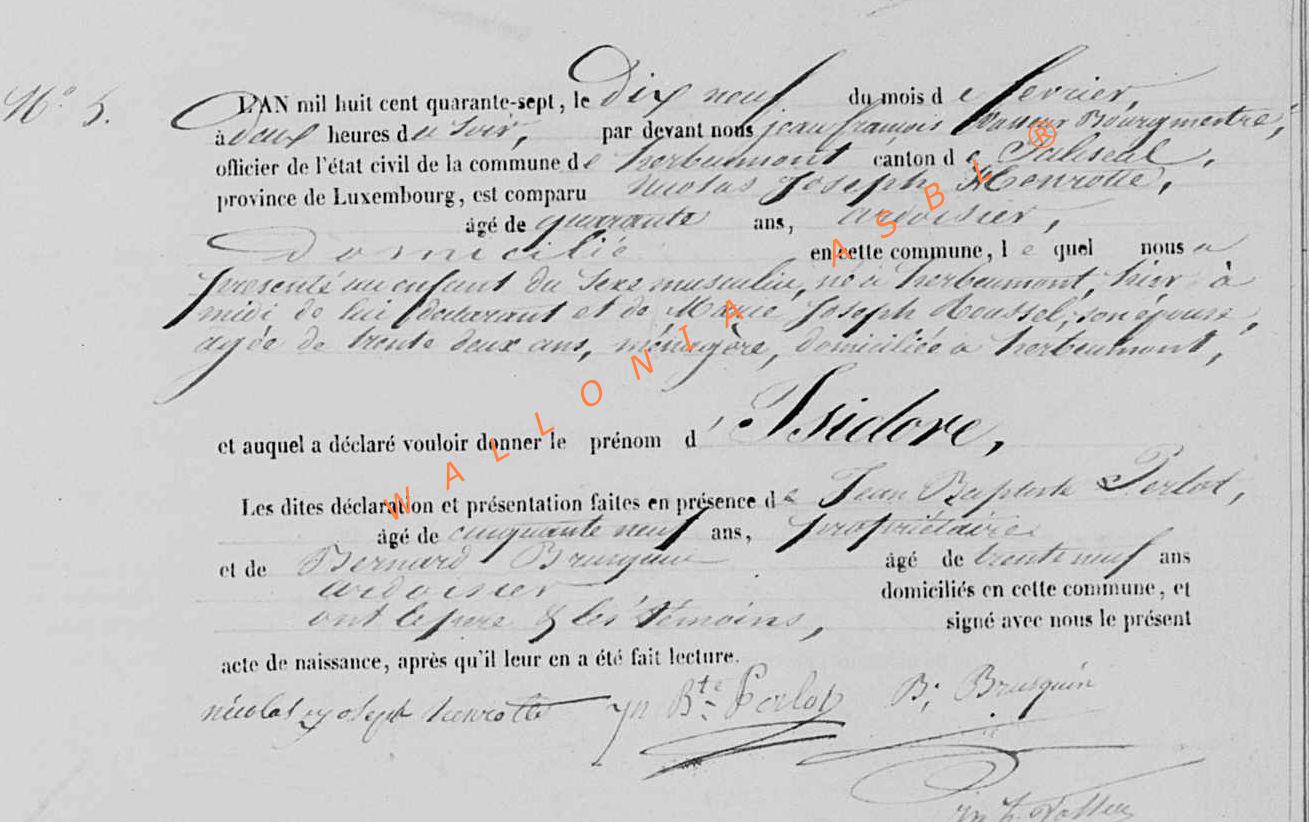 N° 5.
L'AN mil huit cent quarante-sept, le Dix neuf du mois de fevrier,
à deux heures du soir, par devant nous jean françois Bourgmestre,
officier de l'état civil de la commune de herbeumont canton de Paliseul,
province de Luxembourg, est comparu nicolas Joseph Henrotte,
âgé de quarante ans, ardoisier,
domicilié en cette commune, le quel nous a
presenté un enfant du sexe masculin, né à herbeumont, hier à
midi de lui déclarant et de Marie Joseph Roussel, son épouse,
agée de trente deux ans, ménagère, domiciliée à herbeumont,
et auquel a déclaré vouloir donner le prénom d'Isidore,
Les dites déclaration et présentation faites en présence de Jean Baptiste Perlot,
âgé de cinquante neuf ans, propriétaire
et de Bernard Brusquin âgé de trente neuf ans
ardoisier domiciliés en cette commune, et
ont le pere & les témoins, signé avec nous le présent
acte de naissance, après qu'il leur en a été fait lecture.
nicolas joseph henrotte Jn Bte Perlot B. Brusquin
WALLONIA ASBL ®